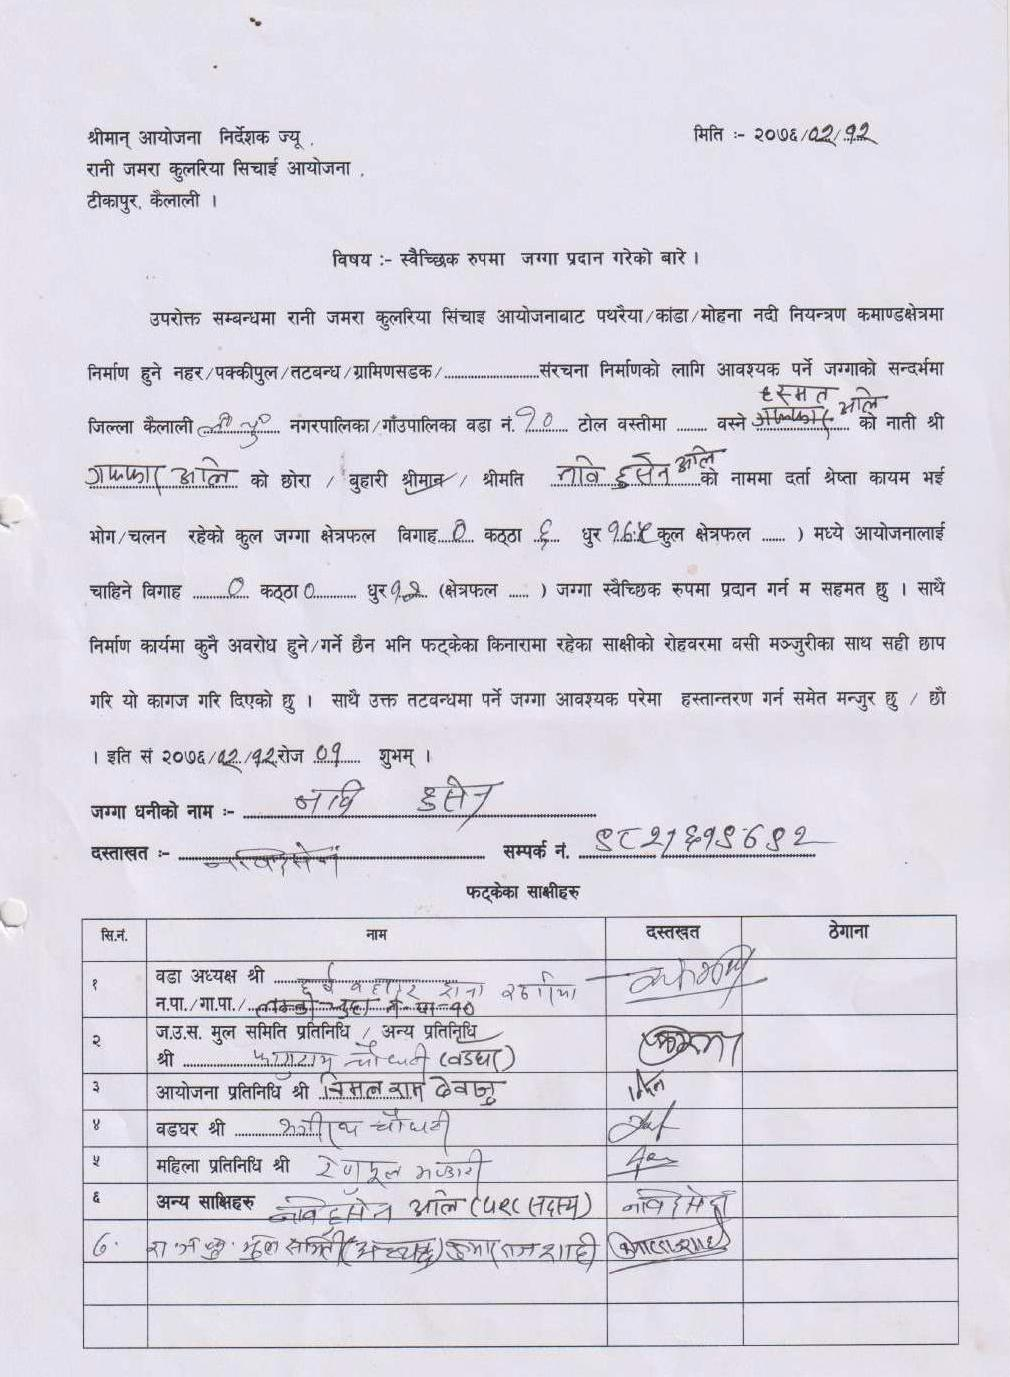 श्रीमान् आयोजना निर्देशक ज्यू , मिति :- २०७६/०२/१२
रानी जमरा कुलरिया सिचाई आयोजना ,
टीकापुर, कैलाली ।
विषय :- स्वैच्छिक रुपमा जग्गा प्रदान गरेको बारे ।
उपरोक्त सम्बन्धमा रानी जमरा कुलरिया सिंचाइ आयोजनाबाट पथरैया/कांडा/मोहना नदी नियन्त्रण कमाण्डक्षेत्रमा
निर्माण हुने नहर/पक्कीपुल/तटबन्ध/ग्रामिणसडक/........................संरचना निर्माणको लागि आवश्यक पर्ने जग्गाको सन्दर्भमा
हस्मत अलि
जिल्ला कैलाली नगरपालिका/गाँउपालिका वडा नं. १० टोल वस्तीमा ........ वस्ने को नाती श्री
गफ्फार अलि को छोरा / बुहारी श्रीमान / श्रीमति नवि हुसेन अलि को नाममा दर्ता श्रेष्ता कायम भई
भोग/चलन रहेको कुल जग्गा क्षेत्रफल विगाह ० कठ्ठा ६ धुर १६.५ कुल क्षेत्रफल ...... ) मध्ये आयोजनालाई
चाहिने विगाह ० कठ्ठा ० धुर (क्षेत्रफल ..... ) जग्गा स्वैच्छिक रुपमा प्रदान गर्न म सहमत छु । साथै
निर्माण कार्यमा कुनै अवरोध हुने/गर्ने छैन भनि फट्केका किनारामा रहेका साक्षीको रोहवरमा वसी मञ्जुरीका साथ सही छाप
गरि यो कागज गरि दिएको छु । साथै उक्त तटवन्धमा पर्ने जग्गा आवश्यक परेमा हस्तान्तरण गर्न समेत मन्जुर छु / छौ
। इति सं २०७६/०२/१२ रोज ०१ शुभम् ।
जग्गा धनीको नाम :- नवि हुसेन
दस्ताखत :- नविहुसेन सम्पर्क नं. ९८२१६१९७९२
फट्केका साक्षीहरु
सि.नं. नाम दस्तखत ठेगाना
१ वडा अध्यक्ष श्री
न.पा./गा.पा./ न.पा-१०
२ ज.उ.स. मुल समिति प्रतिनिधि / अन्य प्रतिनिधि
श्री चौधरी (वडघर)
३ आयोजना प्रतिनिधि श्री विमल राम देवाजु
४ वडघर श्री चौधरी
५ महिला प्रतिनिधि श्री
६ अन्य साक्षिहरु नवि हुसेन अलि सदस्य) नविहुसेन
७. मुल समिती (अध्यक्ष) शाही